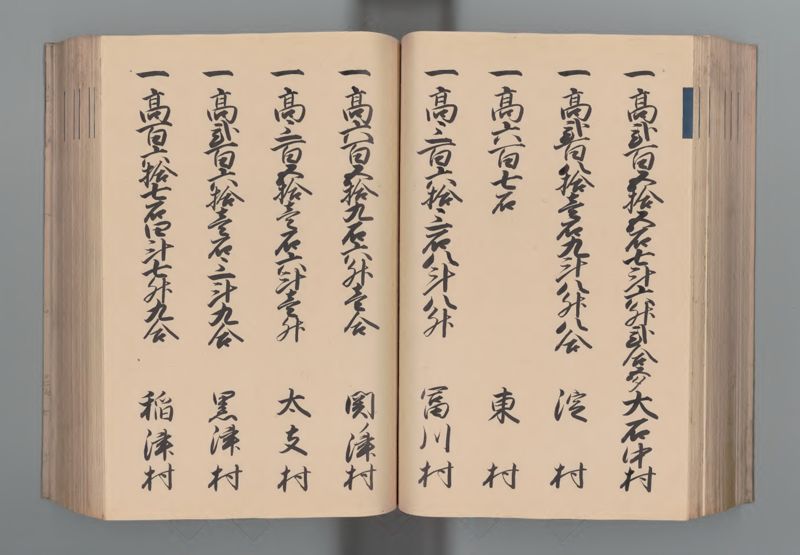 一高弐百五拾五石七斗六升弐合余大石中村
一高弐百八拾壱石九斗八升八合 淀村
一高六百七石 東村
一高三百六拾三石八斗八升 冨川村
一高六百五拾九石六升壱合 関津村
一高三百五拾壱石六斗壱升 太支村
一高弐百六拾壱石三斗九合 黒津村
一高百六拾七石四斗七升九合 稲津村